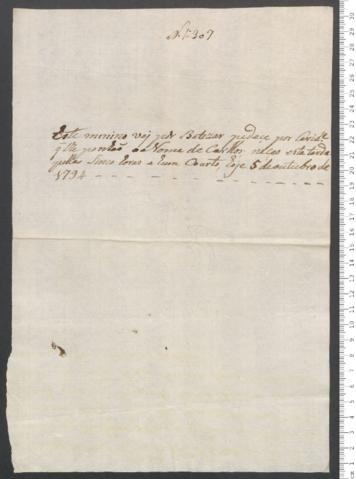 N.º 307
Este menino vej por Botizar pedece por Carid.e
q lhe ponhão o Nome de Carllos naceo esta tarde
pellas Sinco Oras e hum Coarto, Oje 5 de outubro de
1794